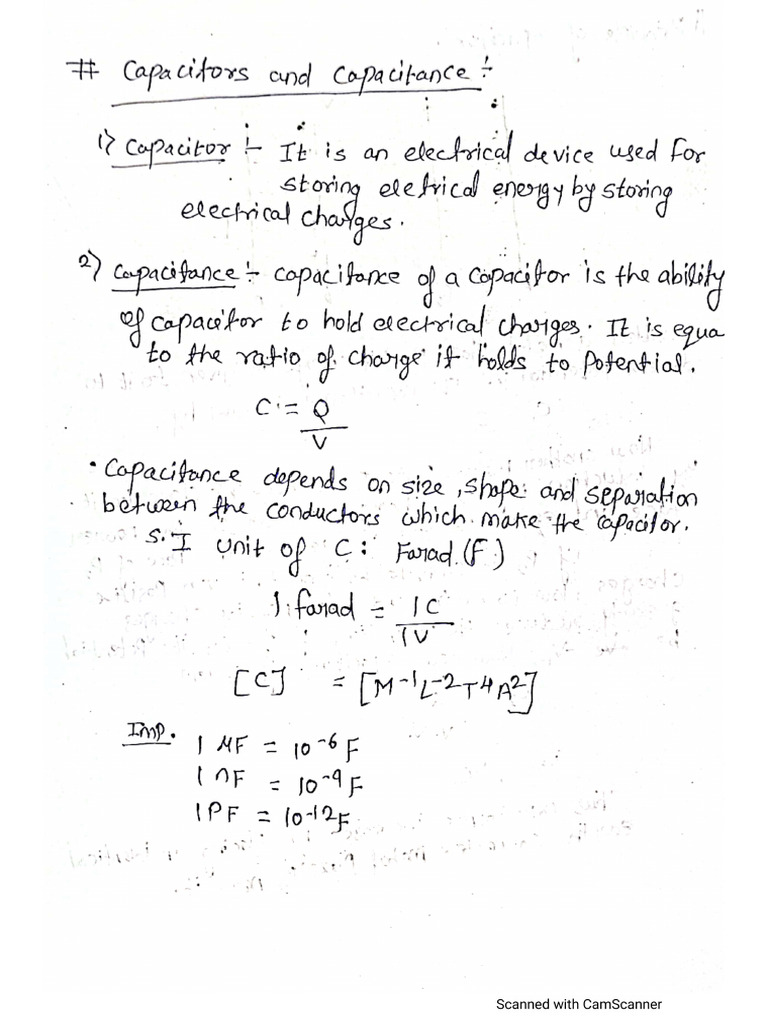 # Capacitors and Capacitance :-
1) Capacitor :- It is an electrical device used for
storing eletrical energy by storing
electrical charges.
2) Capacitance :- capacitance of a capacitor is the ability
of capacitor to hold electrical charges. It is equa
to the ratio of charge it holds to Potential.
C = Q
V
• Capacitance depends on size, shape and separation
between the conductors which make the capacitor.
S.I unit of C : Farad (F)
1 farad = 1C
1V
[C] = [M-1L-2T4A2]
Imp. 1 μF = 10-6 F
1 nF = 10-9 F
1 PF = 10-12 F
Scanned with CamScanner